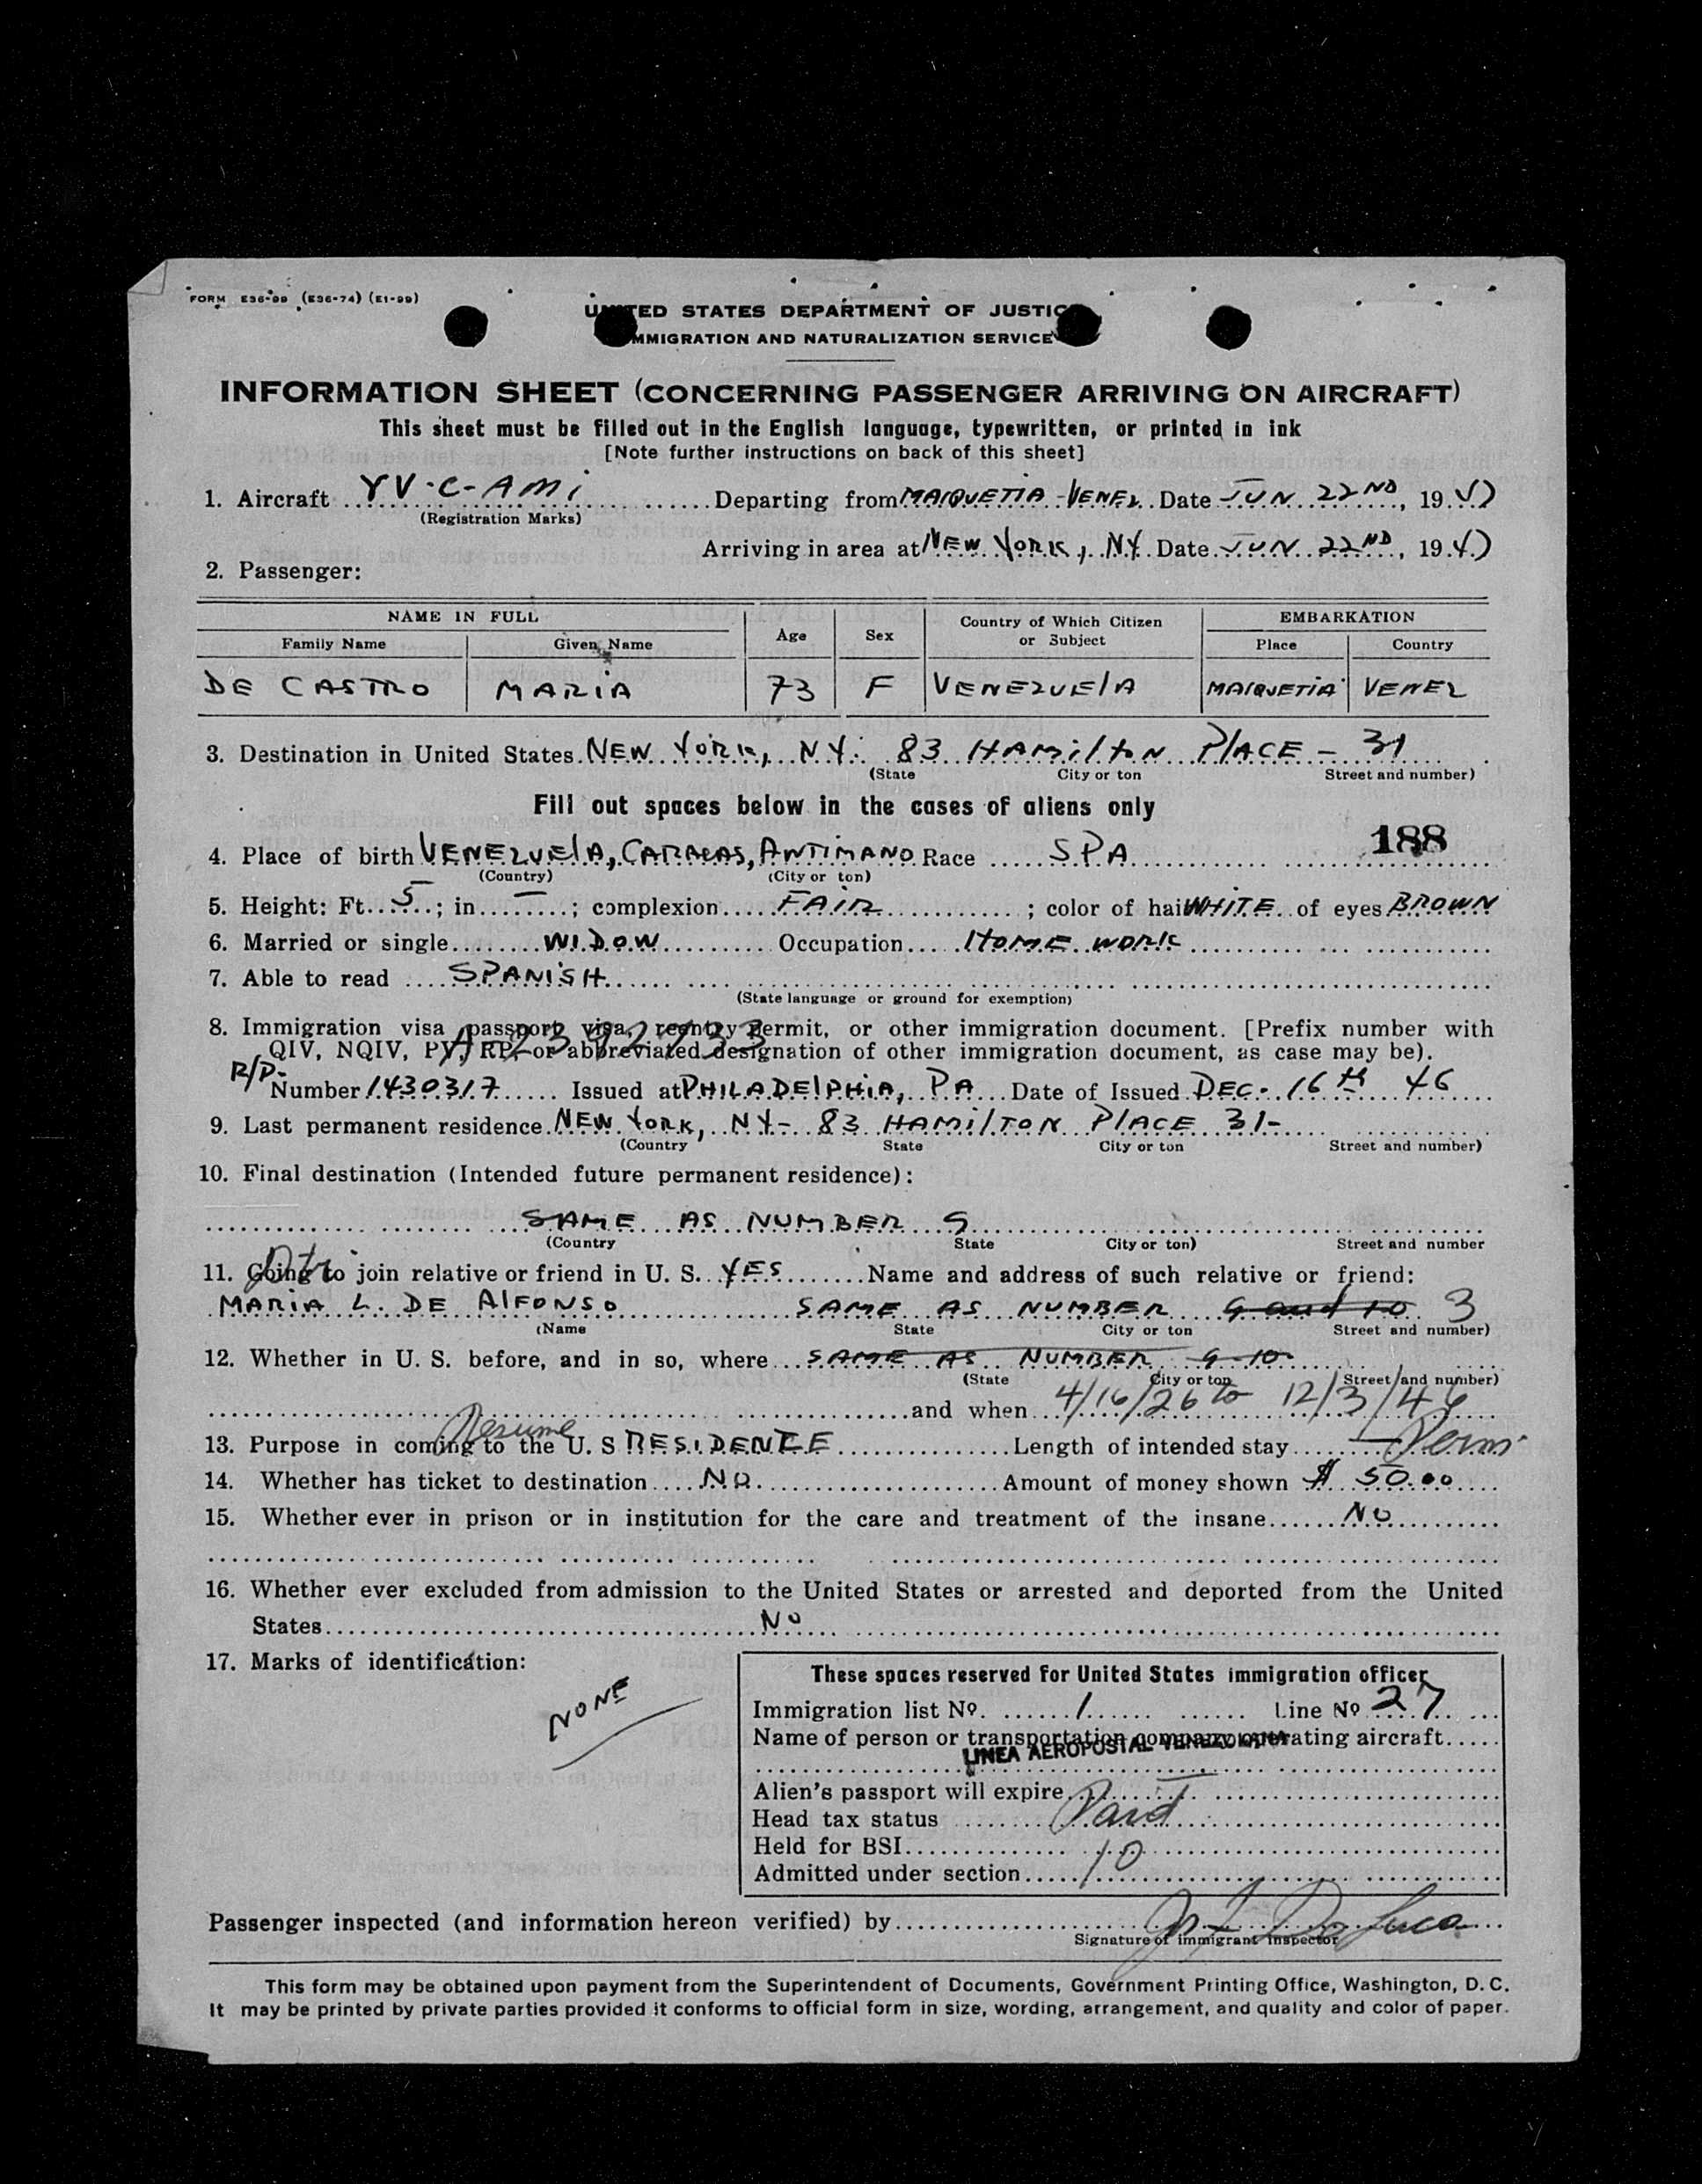 FORM E36-99 (E36-74) (E1-99)
UNITED STATES DEPARTMENT OF JUSTICE
IMMIGRATION AND NATURALIZATION SERVICE
INFORMATION SHEET (CONCERNING PASSENGER ARRIVING ON AIRCRAFT)
This sheet must be filled out in the English language, typewritten, or printed in ink
[Note further instructions on back of this sheet]
1. Aircraft YV-C-AMi Departing from MAIQUETIA-VENEZ. Date JUN 22ND, 1947
(Registration Marks)
Arriving in area at NEW YORK, NY. Date JUN 22ND, 1947
2. Passenger:
NAME IN FULL Age Sex Country of Which Citizen or Subject EMBARKATION
Family Name Given Name Place Country
DE CASTRO MARIA 73 F VENEZUELA MAIQUETIA VENEZ
3. Destination in United States NEW YORK, NY. 83 HAMILTON PLACE - 31
(State City or ton Street and number)
Fill out spaces below in the cases of aliens only
188
4. Place of birth VENEZUELA, CARACAS, ANTIMANO Race SPA
(Country) (City or ton)
5. Height: Ft. 5; in. —; complexion FAIR; color of hai WHITE of eyes BROWN
6. Married or single WIDOW Occupation HOME WORK
7. Able to read SPANISH
(State language or ground for exemption)
8. Immigration visa passport visa, reentry permit, or other immigration document. [Prefix number with
QIV, NQIV, PV, RP, or abbreviated designation of other immigration document, as case may be).
R/P. Number 1430317 Issued at PHILADELPHIA, PA Date of Issued DEC. 16th 46
9. Last permanent residence NEW YORK, NY- 83 HAMILTON PLACE 31-
(Country State City or ton Street and number)
10. Final destination (Intended future permanent residence):
SAME AS NUMBER 9
(Country State City or ton) Street and number
11. Going to join relative or friend in U. S. YES Name and address of such relative or friend:
MARIA L. DE ALFONSO SAME AS NUMBER 9 and 10 3
(Name State City or ton Street and number)
12. Whether in U. S. before, and in so, where SAME AS NUMBER 9-10
(State City or ton Street and number)
and when 4/16/26 to 12/3/46
13. Purpose in coming to the U. S Resume RESIDENCE Length of intended stay Perm.
14. Whether has ticket to destination NO. Amount of money shown $ 50.00
15. Whether ever in prison or in institution for the care and treatment of the insane NO
16. Whether ever excluded from admission to the United States or arrested and deported from the United
States No
17. Marks of identification:
NONE
These spaces reserved for United States immigration officer
Immigration list No. 1 Line No 27
Name of person or transportation company operating aircraft
LINEA AEROPOSTAL VENEZOLANA
Alien's passport will expire
Head tax status Paid
Held for BSI
Admitted under section 10
Passenger inspected (and information hereon verified) by
Signature of immigrant inspector
This form may be obtained upon payment from the Superintendent of Documents, Government Printing Office, Washington, D. C.
It may be printed by private parties provided it conforms to official form in size, wording, arrangement, and quality and color of paper.